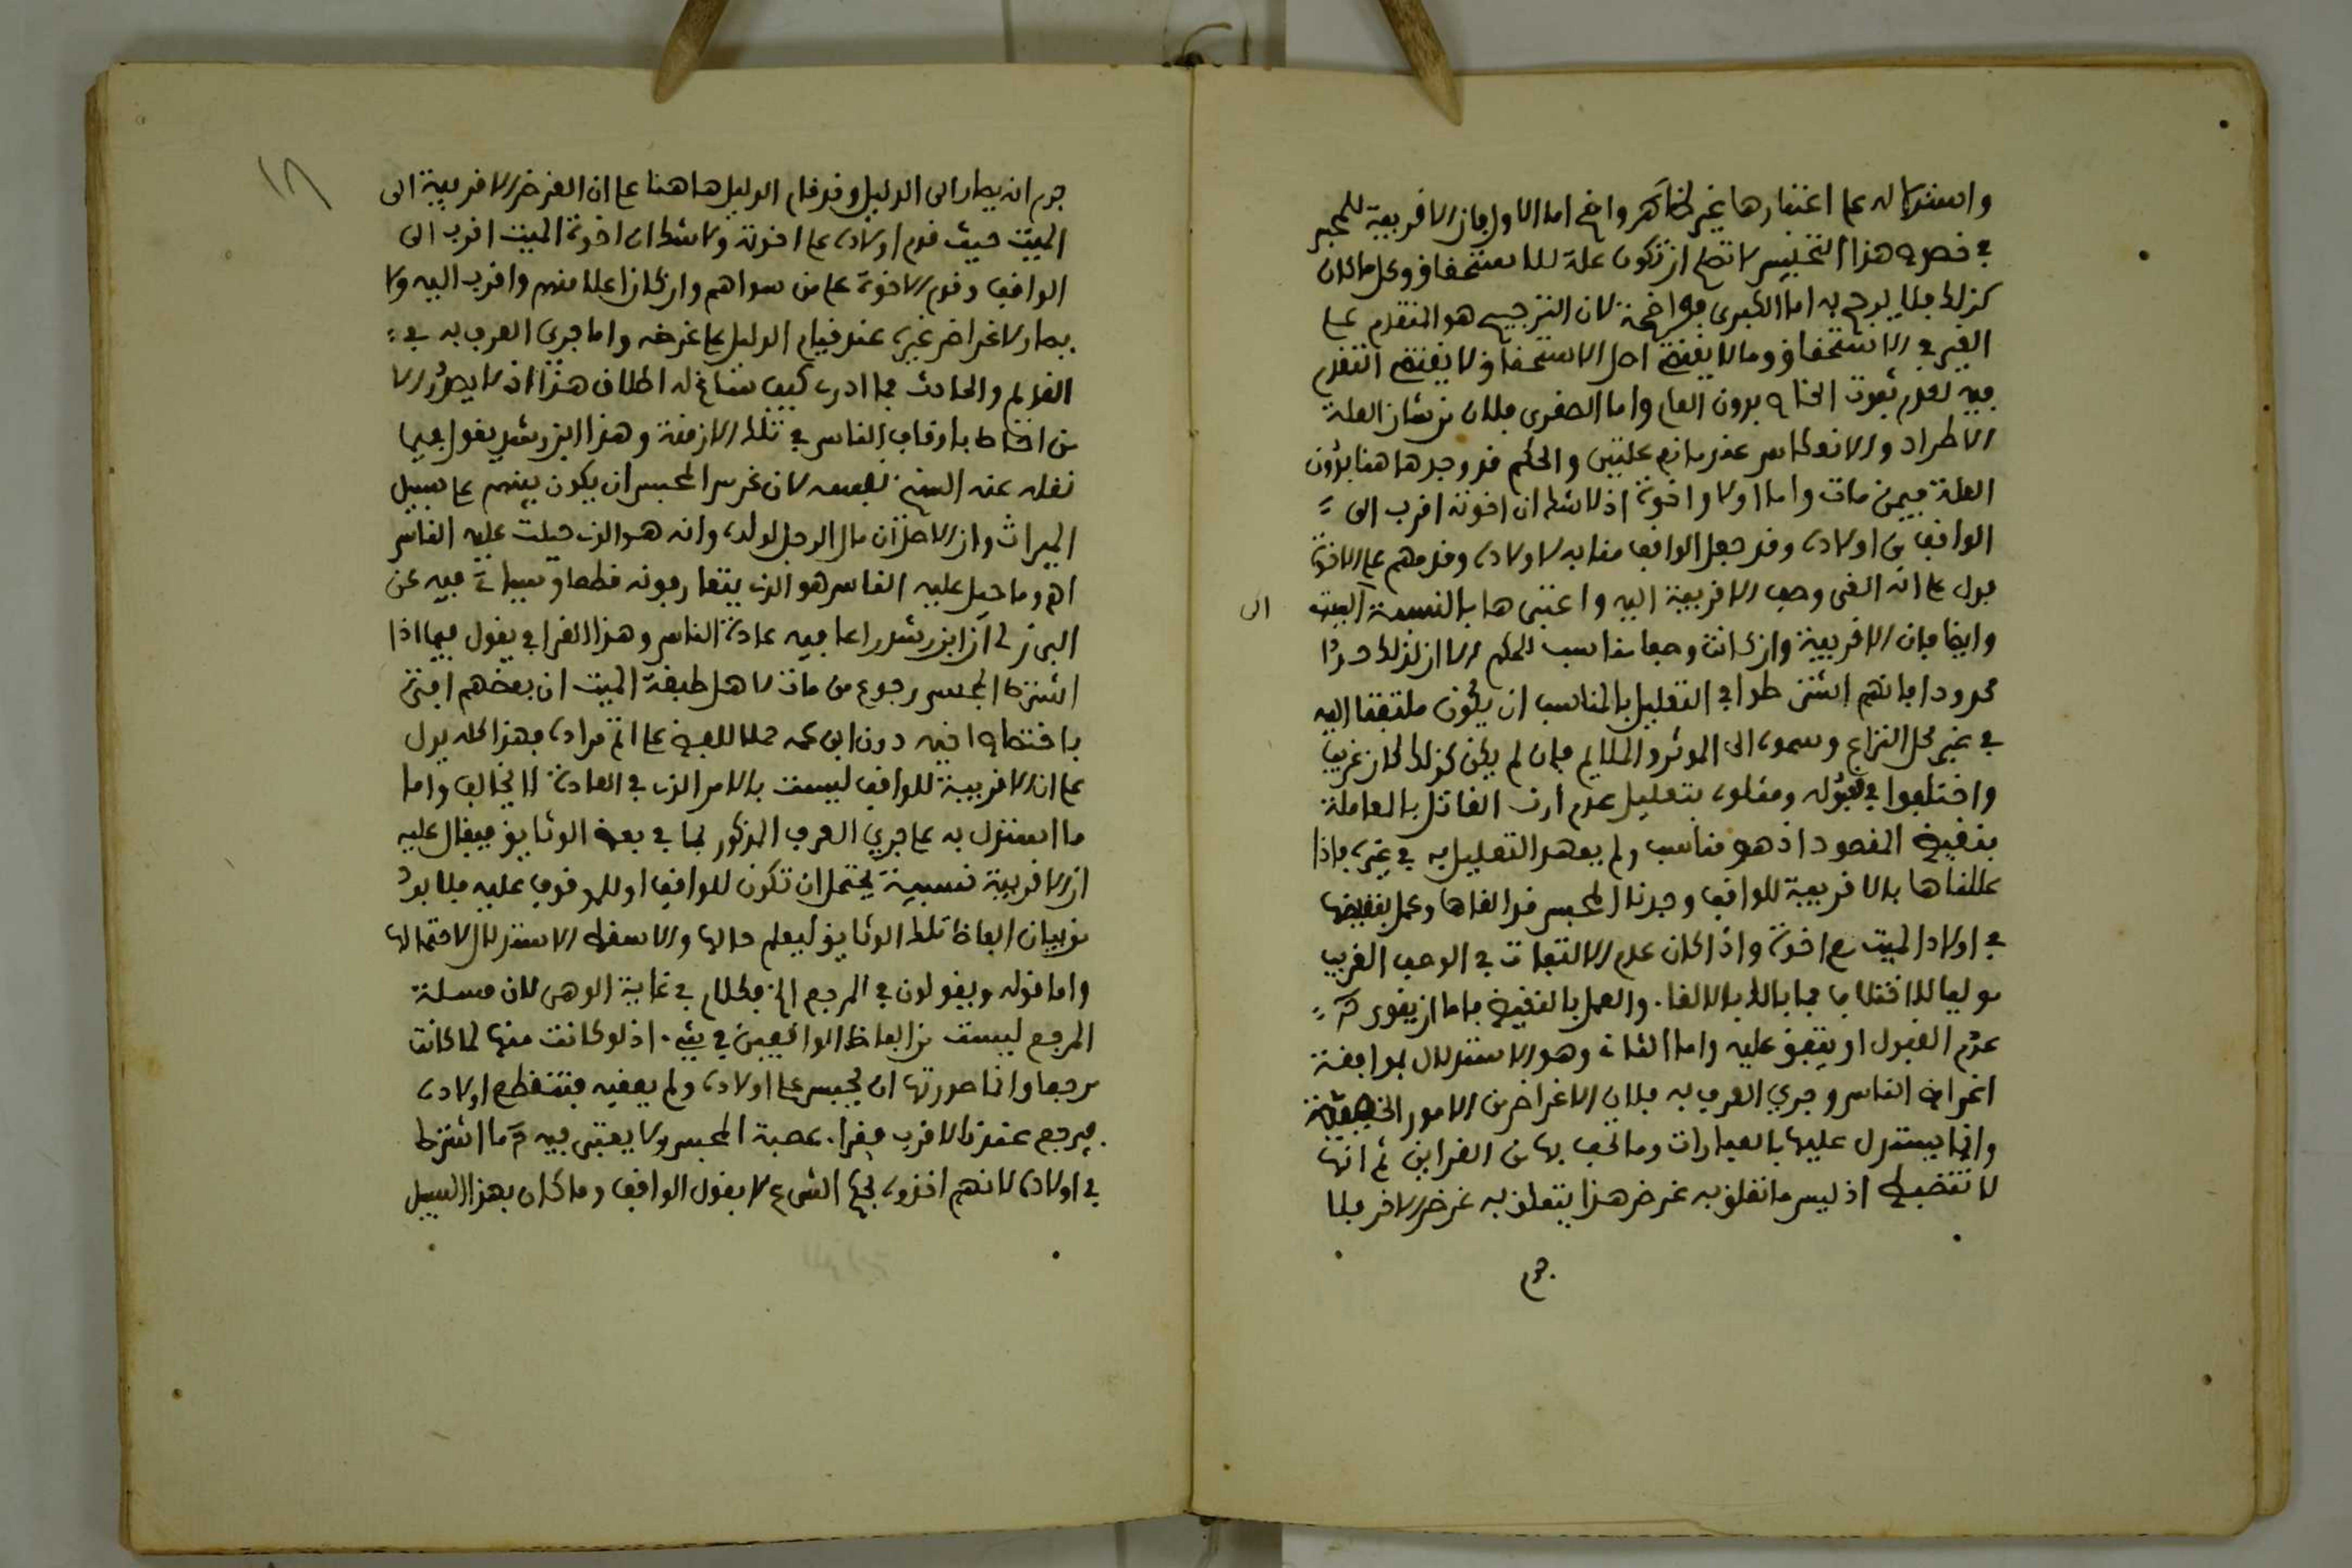 واستدلاله على اعتبارها غير ظاهر واضح اما الاول فان الاقربية للمحبس
في خصوص هذا التحبيس لا تصلح ان تكون علة للاستحقاق وكل ما كان
كذلك فلا يرجح به اما الكبرى فواضحة لان الترجيح هو التقدم على
الغير في الاستحقاق وما لا يقتضي اصل الاستحقاق لا يقتضي التقدم
فيه لعدم ثبوت الخاص بدون العام واما الصغرى فلان من شان العلة
الاطراد والانعكاس عند مانع علتين والحكم قد وجد هاهنا بدون
العلة فيمن مات واما اولا واخوة اذ لا شك ان اخوته اقرب الى
الواقف من اولاده وقد جعل الواقف منابه لاولاده وقدمهم على الاخوة
فدل على انه الغى وصف الاقربية اليه واعتبرها بالنسبة الى الميت
وايضا فان الاقربية وان كانت وصفا مناسب للحكم الا ان لذلك حدا
محدودا فانهم اشترطوا في التعليل بالمناسب ان يكون ملتفتا اليه
في غير محل النزاع وسموه الى الموثر والملايم فان لم يكن كذلك كان غريبا
واختلفوا في قبوله ومثلوه بتعليل عدم ارث القاتل بالمعاملة
بنقيض المقصود اذ هو مناسب ولم يعهد التعليل به في غيره فاذا
عللناها بالاقربية للواقف وجدنا المحبس قد الغاها وعمل بنقيضها
في اولاد الميت مع اخوة واذا كان عدم الالتفات في الوصف الغريب
موليا للاختلاف فما بالك بالالغاء والعمل بالنقيض فاما ان يقوى
عدم القبول او يتفق عليه واما الثاني وهو الاستدلال بموافقة
اغراض الناس وجري العرف به فلان الاغراض من الامور الخفية
وانما يستدل عليها بالعبارات وما يحف بها من القراين ثم انها
لا تنضبط اذ ليس ما تعلق به غرض هذا يتعلق به غرض الاخر فلا
جرم
١٨
جرم ان يصار الى الدليل وقد قام الدليل هاهنا على ان الغرض الاقربية الى
الميت حيث قدم اولاده على اخوته ولا شك ان اخوة الميت اقرب الى
الواقف وقدم الاخوة على من سواهم وان كان اعلا منهم واقرب اليه ولا
يصار لاغراض غيره عند قيام الدليل على غرضه واما جرى العرف به في
القديم والحادث فما ادري كيف ساغ له اطلاق هذا اذ لا يصدر الا
من احاط باوقاف الناس في تلك الازمنة وهذا ابن رشد يقول فيما
نقله عنه الشيخ نفسه لان غرض المحبس ان يكون بينهم على سبيل
الميراث وان الاصل ان مال الرجل لولده وانه هو الذي جبلت عليه الناس
اهـ وما جبل عليه الناس هو الذي يتعارفونه قطعا وسياتي فيه عن
البرزلي ان ابن رشد راعا فيه عادة الناس وهذا القرافي يقول فيما اذا
اشترط المحبس رجوع من مات لاهل طبقة الميت ان بعضهم افتى
باختصاص اخيه دون ابن عمه حملا للفظ على اتم مراده فهذا كله يدل
على ان الاقربية للواقف ليست بالامر الذي في العادة لا يخالف واما
ما استدل به على جري العرف المذكور بما في بعض الوثايق فيقال عليه
ان الاقربية نسبية يحتمل ان تكون للواقف او للموقوف عليه فلا بد
من بيان الفاظ تلك الوثايق ليعلم حالها والا سقط الاستدلال لاحتمالها
واما قوله ويقولون في المرجع الخ فكلام في غاية الوهن لان مسلة
المرجع ليست من الفاظ الواقفين في شيء اذ لو كانت منها لما كانت
مرجعا وانما صورتها ان يحبس على اولاده ولم يعقبه فتنقطع اولاده
فيرجع عندنا لاقرب فقراء عصبة المحبس ولا يعتبر فيه ما اشترط
في اولاده لانهم اخذوه بحكم الشرع لا بقول الواقف وما كان بهذا السبيل